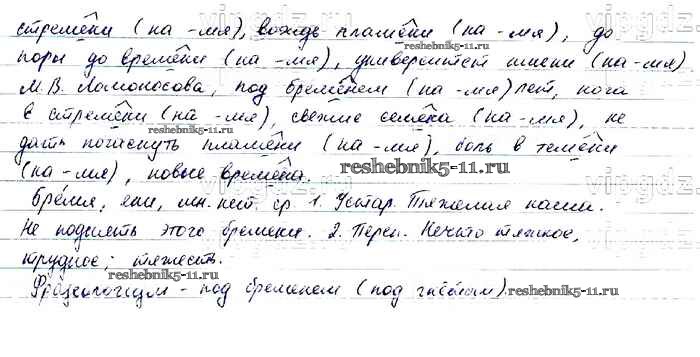 стремени (на -мя), вождь племени (на -мя), до
поры до времени (на -мя), университет имени (на -мя)
М.В. Ломоносова, под бременем (на -мя) лет, нога
в стремени (на -мя), свежие семена (на -мя), не
дать погаснуть пламени (на -мя), боль в темени
(на -мя), новые времена.
Бремя, ени, мн. нет. ср. 1. Устар. Тяжелая ноша.
Не поднять этого бремени. 2. Перен. Нечто тяжкое,
трудное; тяжесть.
Фразеологизм - под бременем (под гнётом)
vipgdz.ru
reshebnik5-11.ru